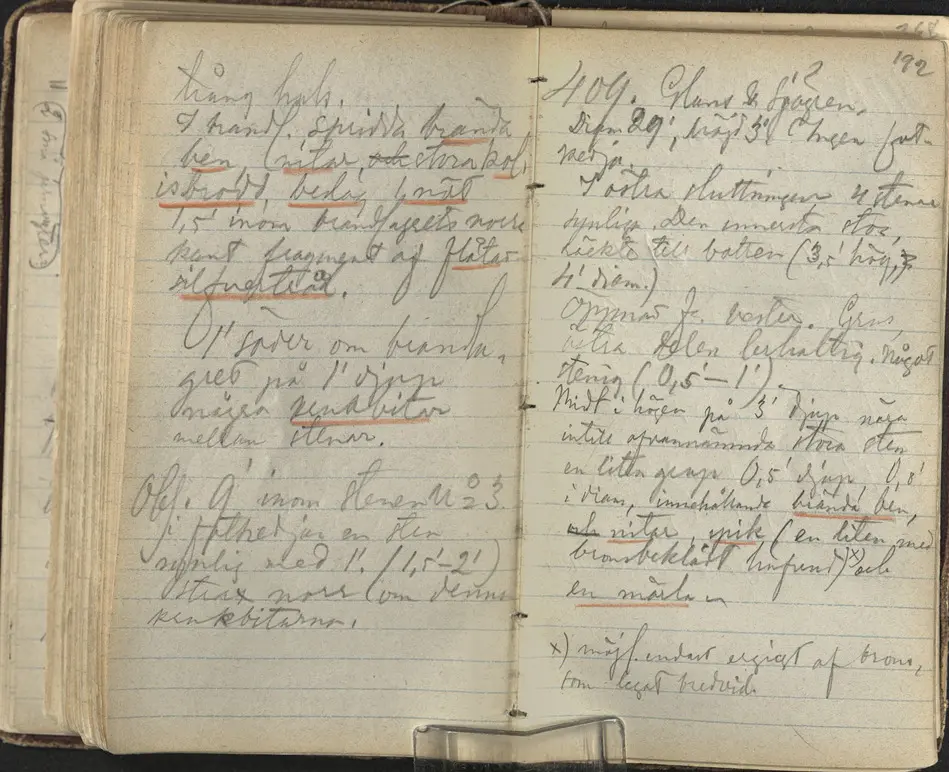 trång hals.
I brandl. spridda brända
ben, (nitar, och stora kol,
isbrodd, beslag,
1,5' inom brandlagrets norra
kant fragment af flätad
silfvertråd.
1' söder om brandla-
gret på 1' djup
några benbitar
mellan stenar.
Obs. 9' inom stenen No 3
i fotkedjan en sten
synlig med 1'. (1,5'-2')
Strax norr om denna
benbitarna.
192
409. Hans &
Diam 29', höjd 3'. Ingen fot-
kedja.
I östra sluttningen 4 stenar
synliga. Den innersta stor,
räckte till botten (3,5' hög,
4' diam.)
Öppnad fr. vester. Grus,
östra delen lerhaltig. Något
stenig (0,5'-1')
Midt i högen på 3' djup nära
intill ofvannämnda stora sten
en liten grop 0,5' djup, 0,8'
i diam, innehållande brända ben,
och nitar, spik (en liten med
bronsbeklädt hufvud) x) och
en märla
x) möjl. endast ergigt af brons,
som legat bredvid.